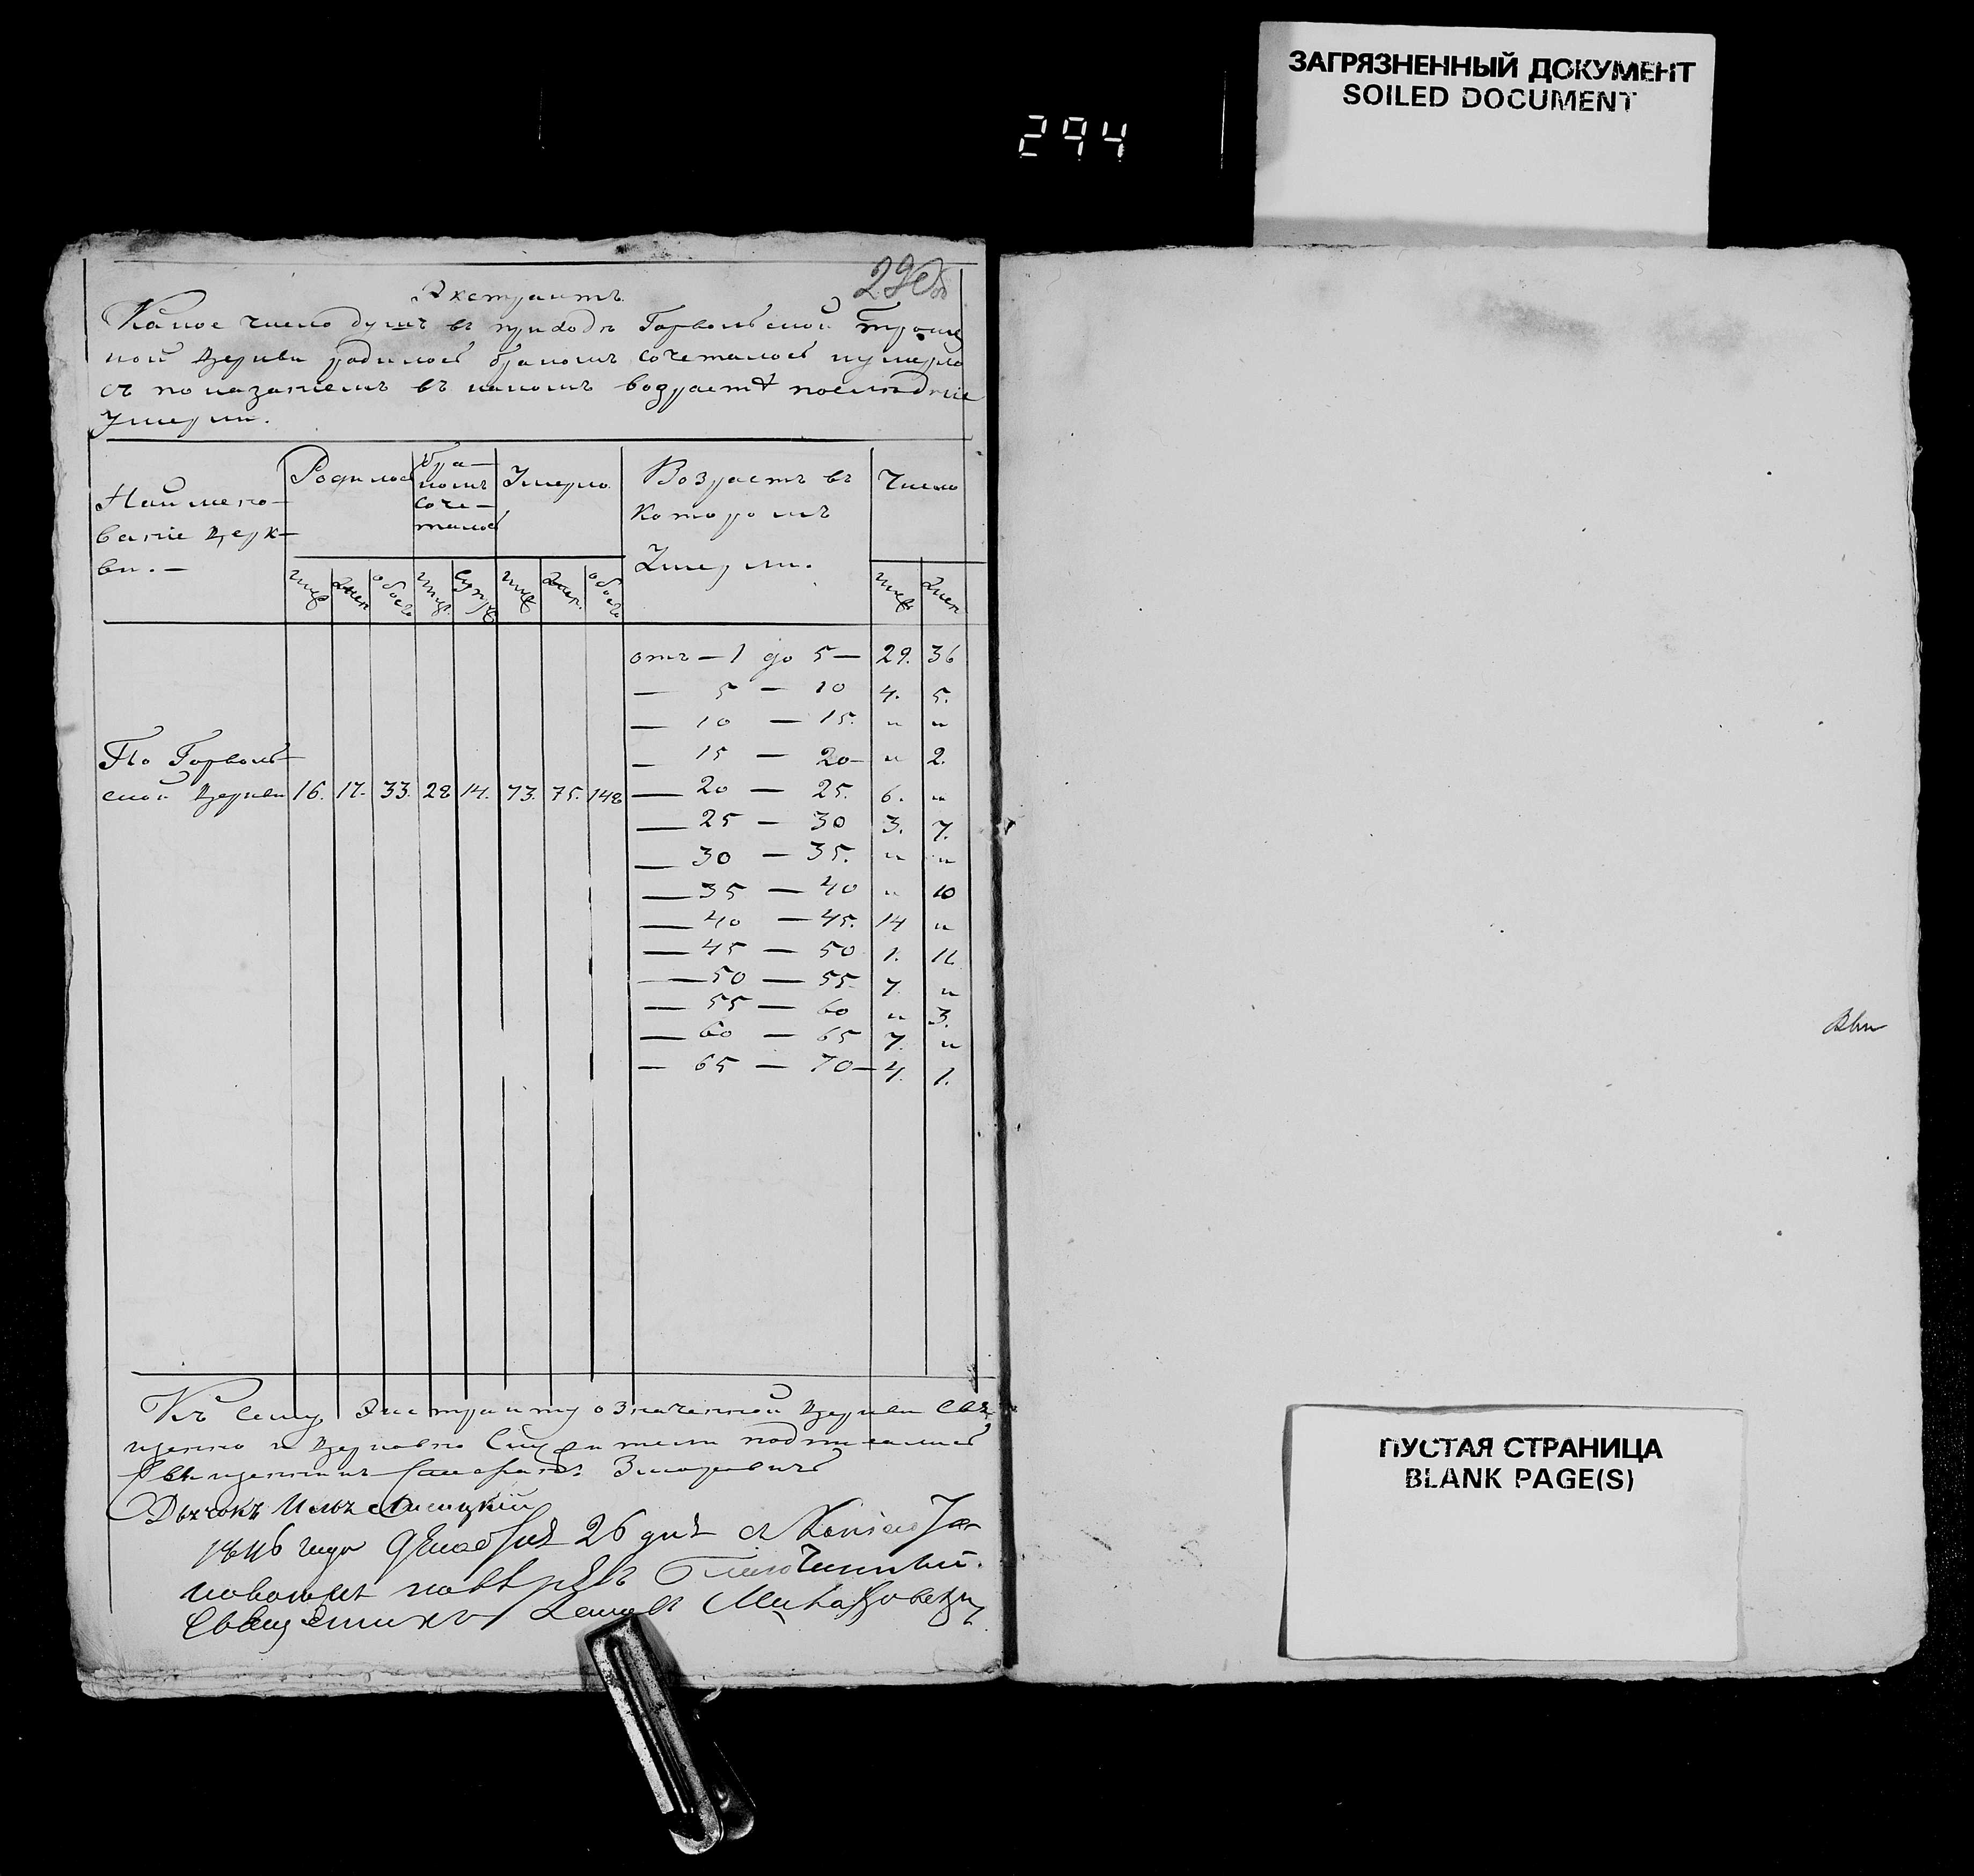 ЗАГРЯЗНЕННЫЙ ДОКУМЕНТ
SOILED DOCUMENT
294
Экстрактъ
Какое число душъ въ приходѣ Горвольской Троиц
кой Церкви родилось бракомъ сочеталось и умерло
съ показаніемъ въ какомъ возрастѣ послѣдніе
Умерли.
Наимено-
ваніе Церк-
ви. —
Родилось
бра-
комъ
соче-
талось
Умерло
Возрастъ въ
которомъ
Умерли.
Число
муж жен обоего муж. супруж муж жен. обоего муж. жен
отъ — 1 до 5 — 29. 36
— 5 — 10 4. 5.
— 10 — 15. „ „
— 15 — 20 — „ 2.
— 20 — 25. 6. „
— 25 — 30 3. 7.
— 30 — 35. „ „
— 35 — 40 „ 10
— 40 — 45. 14 „
— 45 — 50 1. 11
— 50 — 55 7. „
— 55 — 60 „ 3.
— 60 — 65 7. „
— 65 — 70 — 4. 1.
По Горволь
ской Церкви 16. 17. 33. 28 14. 73. 75. 148
Къ сему Экстракту означенной Церкви Свя
щенно и Церковно Служители подписались
Священникъ
Дьячокъ
1846 года Декабря 26 дня съ
Благочинный
Священникъ
ПУСТАЯ СТРАНИЦА
BLANK PAGE(S)